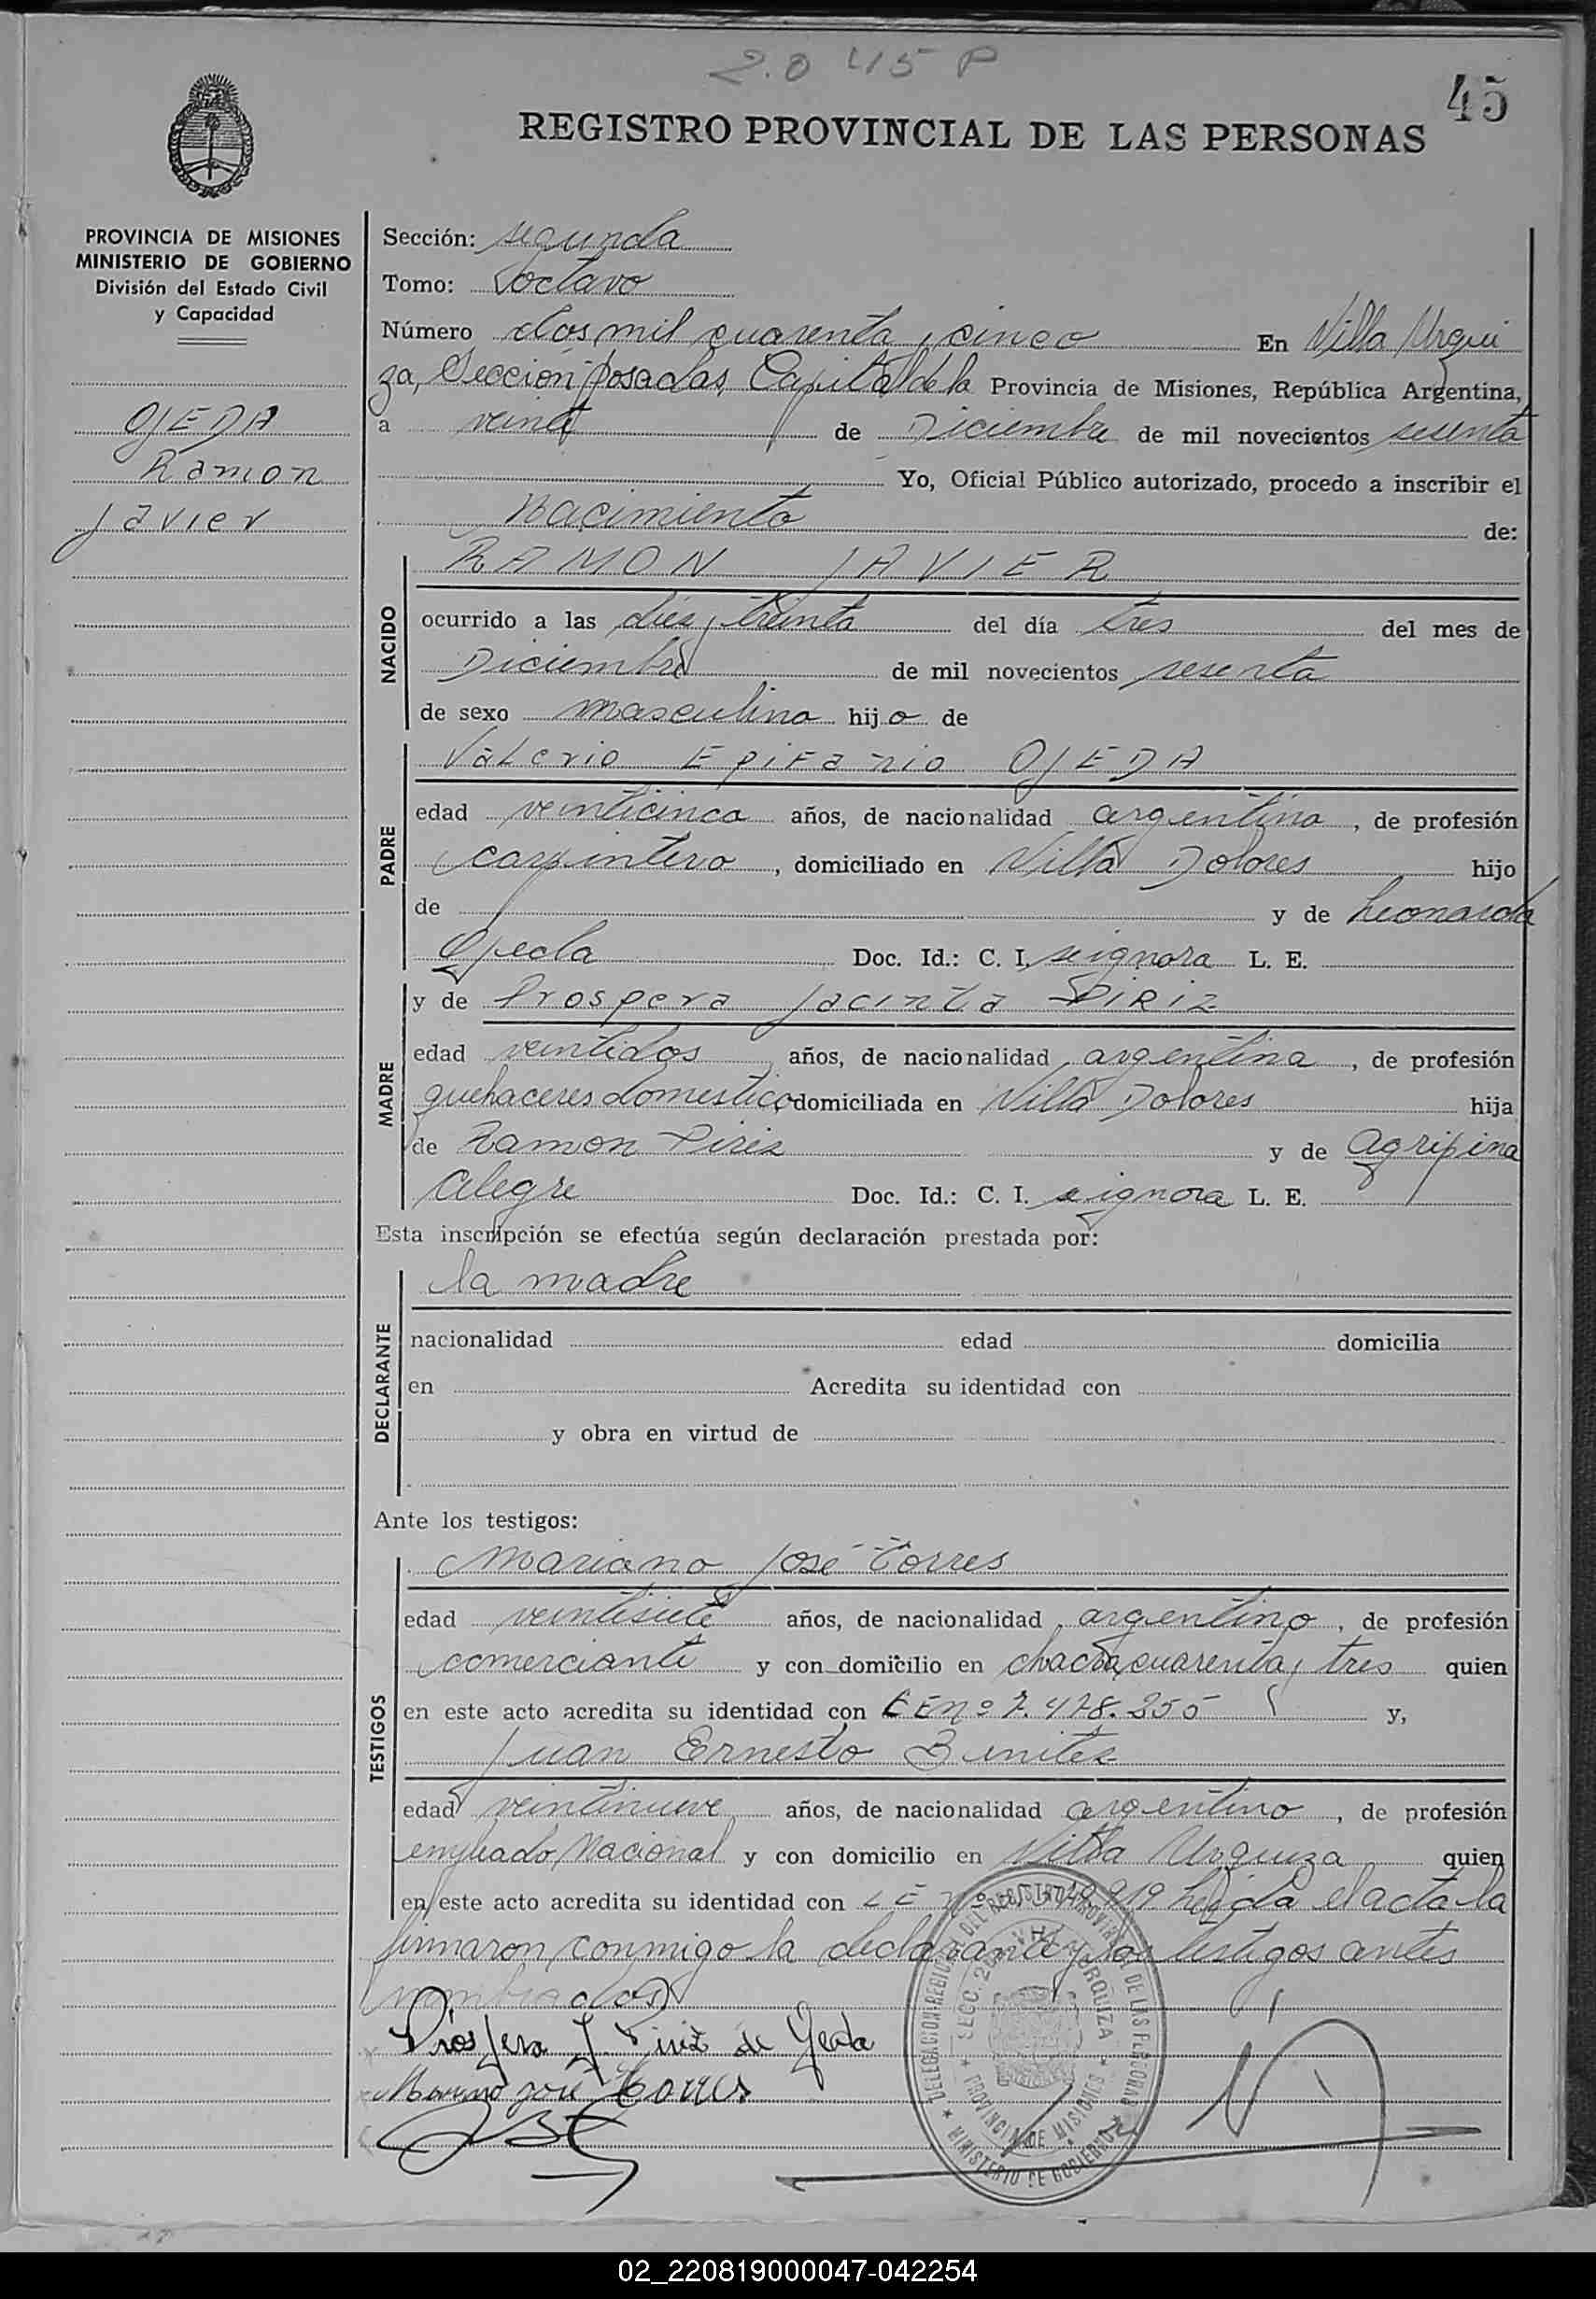 2.045 P
45
REGISTRO PROVINCIAL DE LAS PERSONAS
PROVINCIA DE MISIONES
MINISTERIO DE GOBIERNO
División del Estado Civil
y Capacidad
OJEDA
Ramon
Javier
Sección: segunda
Tomo: octavo
Número dos mil cuarenta y cinco En Villa Urqui
za, Sección Posadas, Capital de la Provincia de Misiones, República Argentina,
a veinte de Diciembre de mil novecientos sesenta
Yo, Oficial Público autorizado, procedo a inscribir el
Nacimiento de:
NACIDO
RAMON JAVIER
ocurrido a las diez y treinta del día tres del mes de
Diciembre de mil novecientos sesenta
de sexo masculino hijo de
PADRE
Valerio Epifanio OJEDA
edad veinticinco años, de nacionalidad argentina, de profesión
carpintero, domiciliado en Villa Dolores hijo
de y de Leonarda
Ojeda Doc. Id.: C. I. se ignora L. E.
MADRE
y de Prospera Jacinta PIRIZ
edad veintidos años, de nacionalidad argentina, de profesión
quehaceres domestico domiciliada en Villa Dolores hija
de Ramon Piriz y de Agripina
Alegre Doc. Id.: C. I. se ignora L. E.
Esta inscripción se efectúa según declaración prestada por:
DECLARANTE
la madre
nacionalidad edad domicilia
en Acredita su identidad con
y obra en virtud de
Ante los testigos:
TESTIGOS
Mariano José Torres
edad veintisiete años, de nacionalidad argentino, de profesión
comerciante y con domicilio en chacra cuarenta y tres quien
en este acto acredita su identidad con L E nº 7.478.255 y,
Juan Ernesto Benitez
edad veintinueve años, de nacionalidad argentino, de profesión
empleado Nacional y con domicilio en Villa Urquiza quien
en este acto acredita su identidad con L E Nº leida el acta la
firmaron conmigo la declarante y los testigos antes
nombrados
Prospera J. Piriz de Ojeda
Mariano José Torres
DELEGACION REGIONAL DEL REGISTRO PROVINCIAL DE LAS PERSONAS
SECC. 2da VILLA URQUIZA
PROVINCIA DE MISIONES
MINISTERIO DE GOBIERNO
02_220819000047-042254